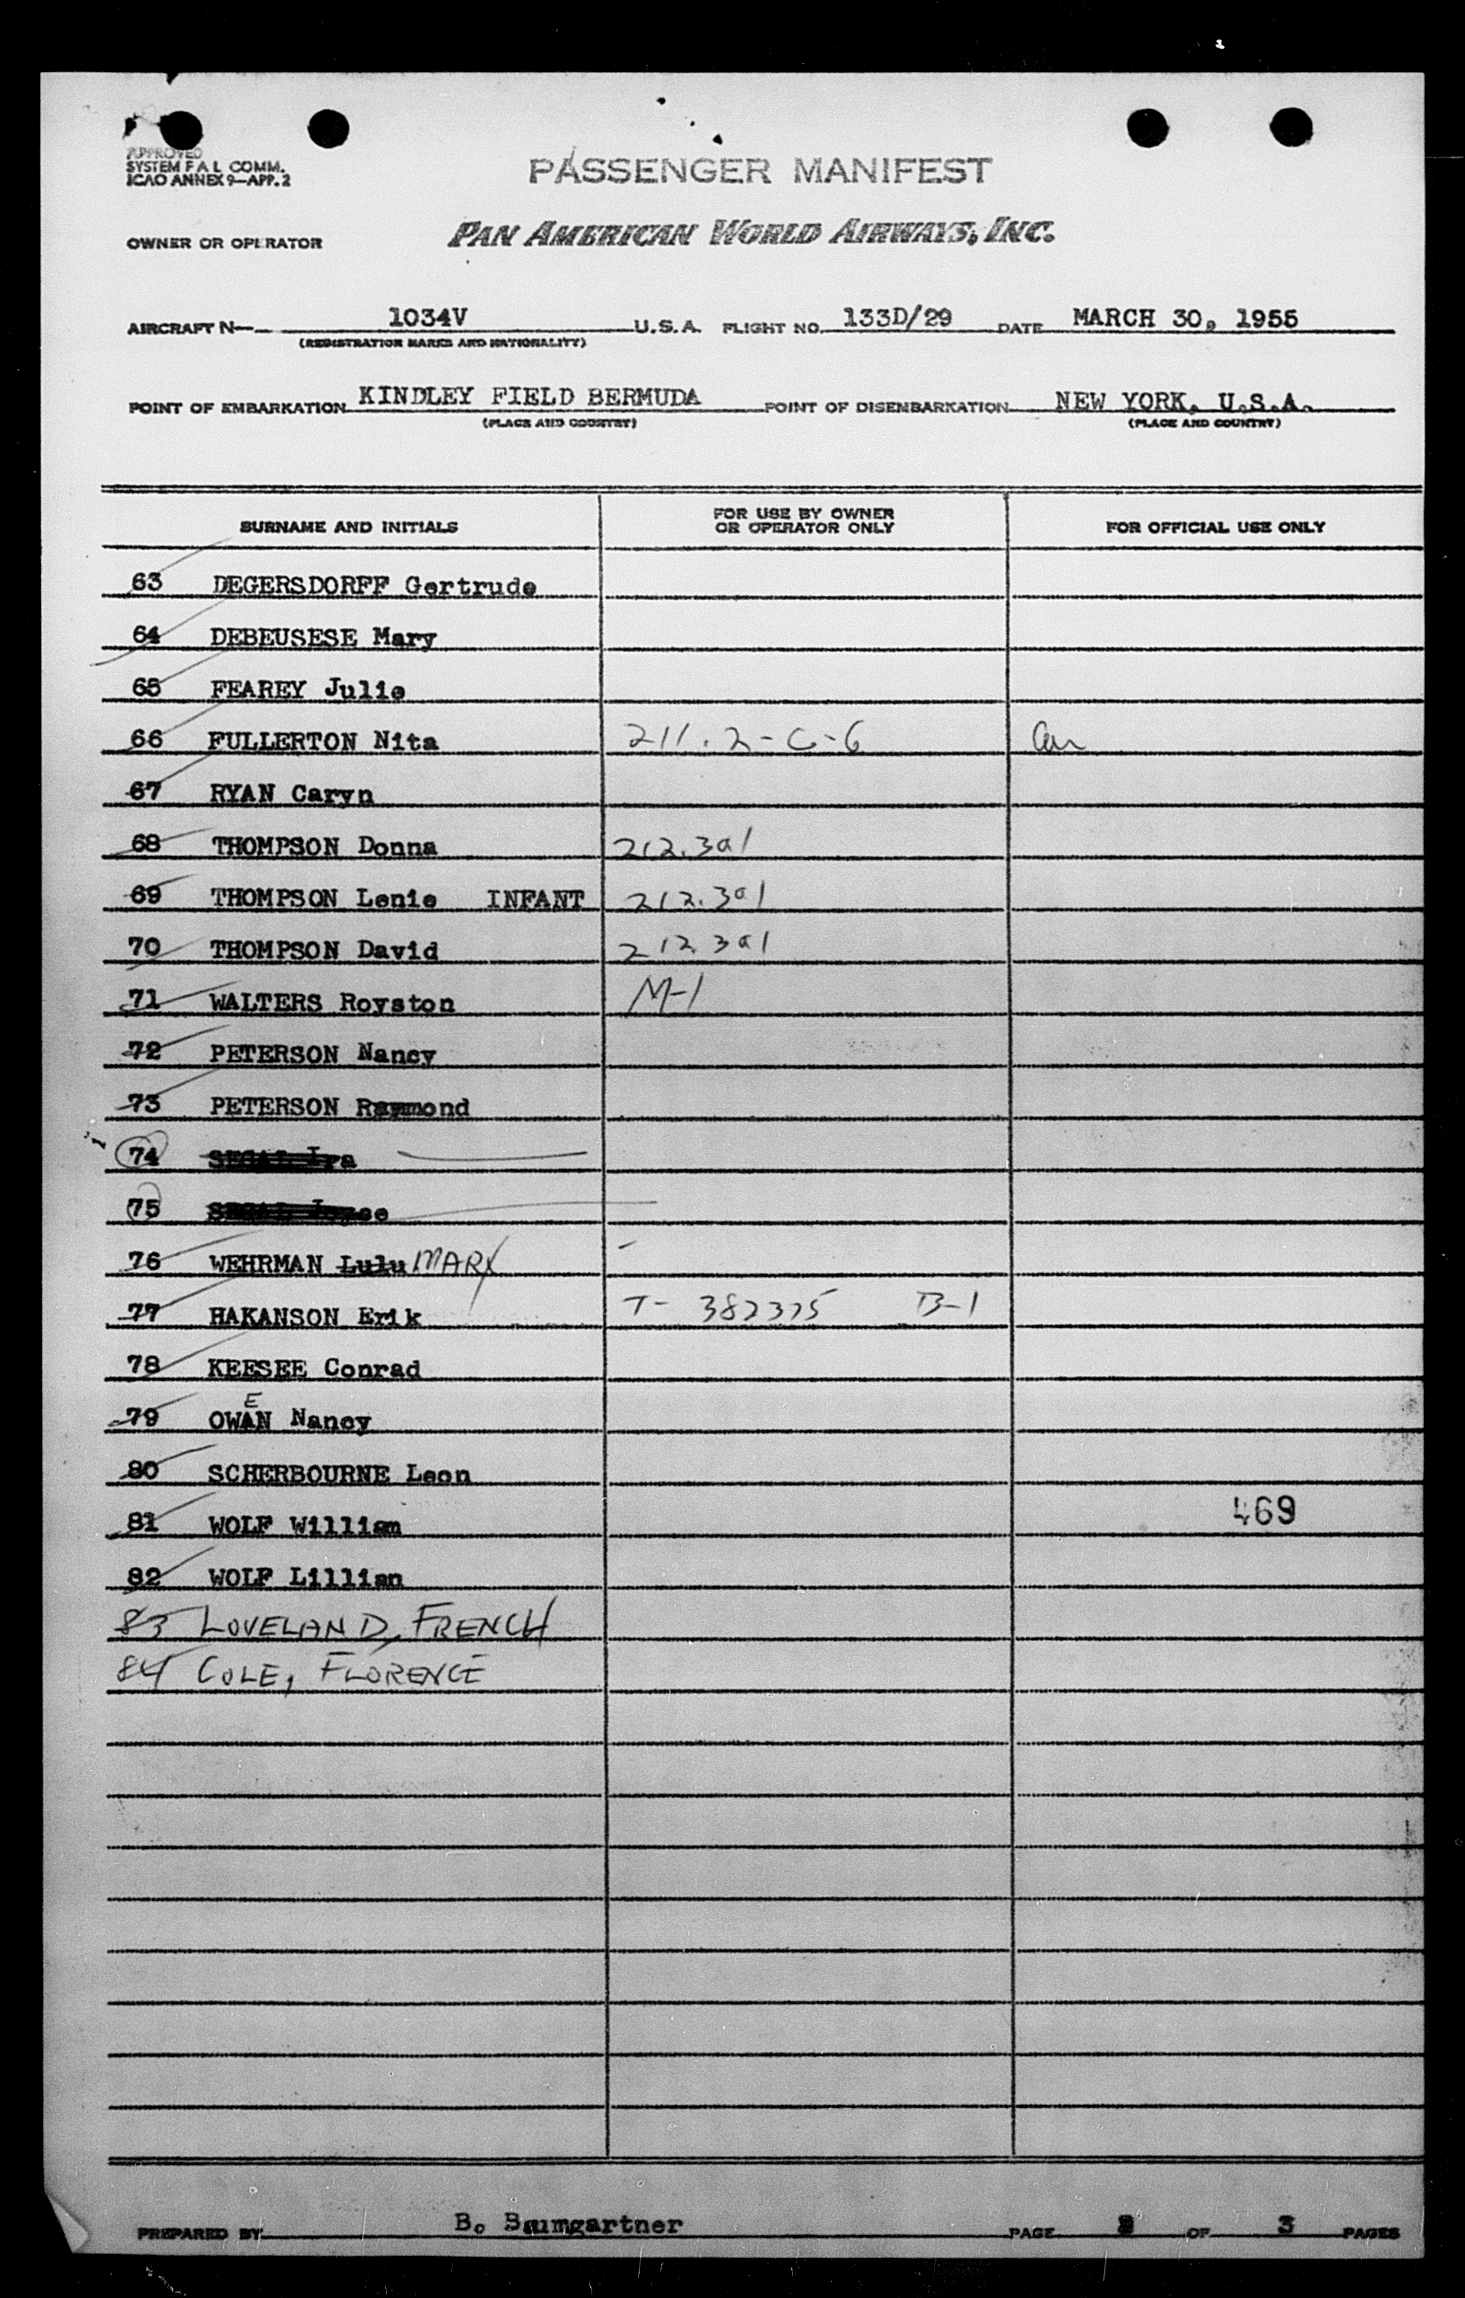 APPROVED
SYSTEM F A L COMM.
ICAO ANNEX 9—APP. 2
PASSENGER MANIFEST
OWNER OR OPERATOR PAN AMERICAN WORLD AIRWAYS, INC.
AIRCRAFT N— 1034V U.S.A. FLIGHT NO. 133D/29 DATE MARCH 30, 1955
(REGISTRATION MARKS AND NATIONALITY)
POINT OF EMBARKATION KINDLEY FIELD BERMUDA POINT OF DISEMBARKATION NEW YORK, U.S.A.
(PLACE AND COUNTRY) (PLACE AND COUNTRY)
SURNAME AND INITIALS FOR USE BY OWNER OR OPERATOR ONLY FOR OFFICIAL USE ONLY
63 DEGERSDORFF Gertrude
64 DEBEUSESE Mary
65 FEAREY Julie
66 FULLERTON Nita 211.2-C-6
67 RYAN Caryn
68 THOMPSON Donna 212.3a1
69 THOMPSON Lenie INFANT 212.3a1
70 THOMPSON David 212 3a1
71 WALTERS Royston M-1
72 PETERSON Nancy
73 PETERSON Raymond
74 SEGAL Ira
75 SEGAL Joyce
76 WEHRMAN Lulu MARX
77 HAKANSON Erik T- 382375 B-1
78 KEESEE Conrad
79 OWAN E Nancy
80 SCHERBOURNE Leon
81 WOLF William 469
82 WOLF Lillian
83 LOVELAND, FRENCH
84 COLE, FLORENCE
PREPARED BY B. Baumgartner PAGE OF 3 PAGES